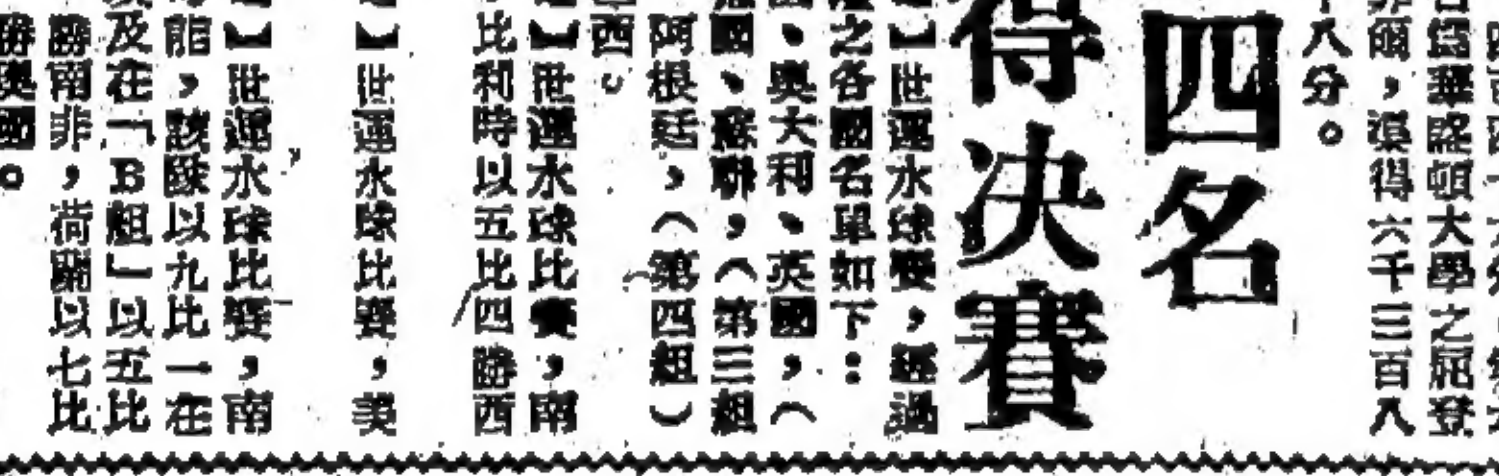 名爲華盛頓大學之屈登
菲爾，獲得六千三百八
十八分。
四名
得决賽
】世運水球賽，經過
之各國名單如下：
、奧大利、英國，（
國、蘇聯，（第三組
阿根廷，（第四組）
西。
】世運水球比賽，南
比利時以五比四勝西
】世運水球比賽，美
】世運水球比賽，南
能，該隊以九比一在
及在「B組」以五比
勝南非，荷蘭以七比
勝英國。